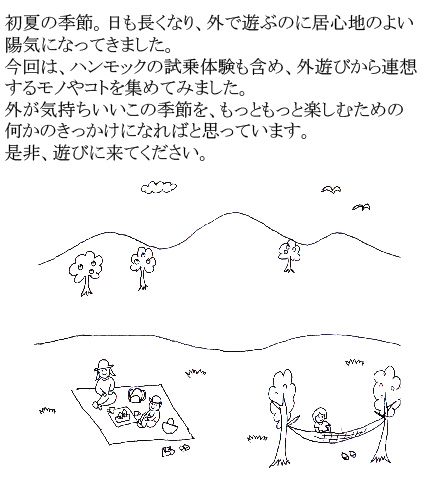 初夏の季節。日も長くなり、外で遊ぶのに居心地のよい
陽気になってきました。
今回は、ハンモックの試乗体験も含め、外遊びから連想
するモノやコトを集めてみました。
外が気持ちいいこの季節を、もっともっと楽しむための
何かのきっかけになればと思っています。
是非、遊びに来てください。